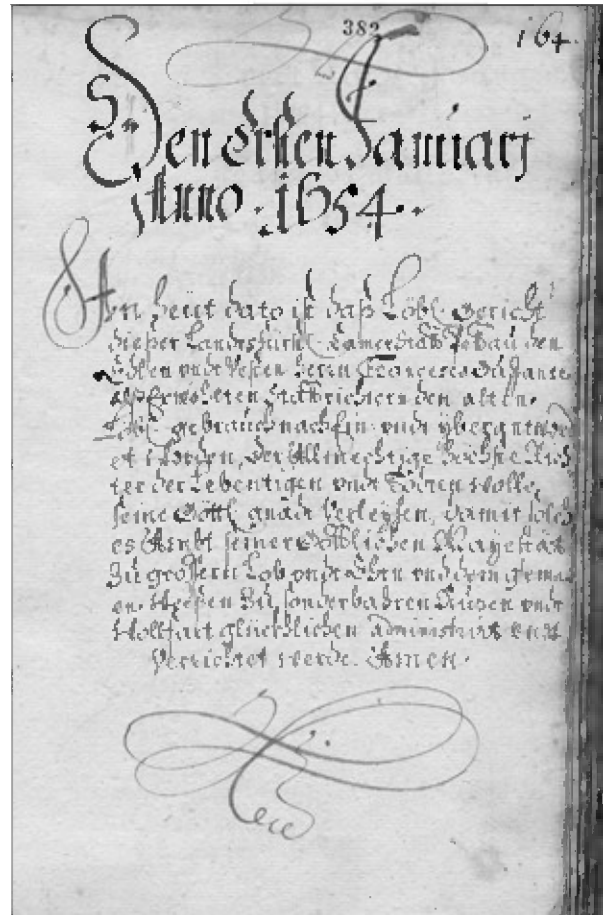 382
164
Den Ersten Januarj
Anno · 1654 ·
An heüt dato ist daß Löbl: Gericht
dießer Landtsfürstl: Camerstatt den
Edlen vndt Vesten herrn Francesco
Erwöleten Stattrichtern den alten
Löbl: gebrauch nach Ein vndt yberantword
et worden, der Allmechtige höchste Rich
ter der Lebentigen vndt Todten wolle
seine Göttl: gnadt Verleyhen, damit solch
es Ambt seiner Göttlichen Mayestät
Zu grossern Lob vndt Ehrn vnd dem gemei
en Weeßen Zu sonderbahren Nuzen vndt
Wolfart glückhlichen administrirt vndt
Verrichtet werde. Amen.